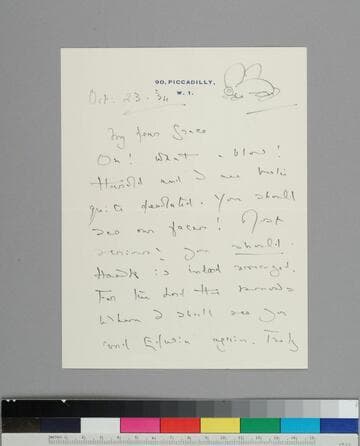 90, PICCADILLY,
W. 1.
Oct. 23. 34
My dear Grace
Oh! What a blow!
Harold and I are both
quite desolated. You should
see our faces! Not
you should.
is indeed avenged.
For the Lord He knows
When I shall see you
and Edwin again. Truly